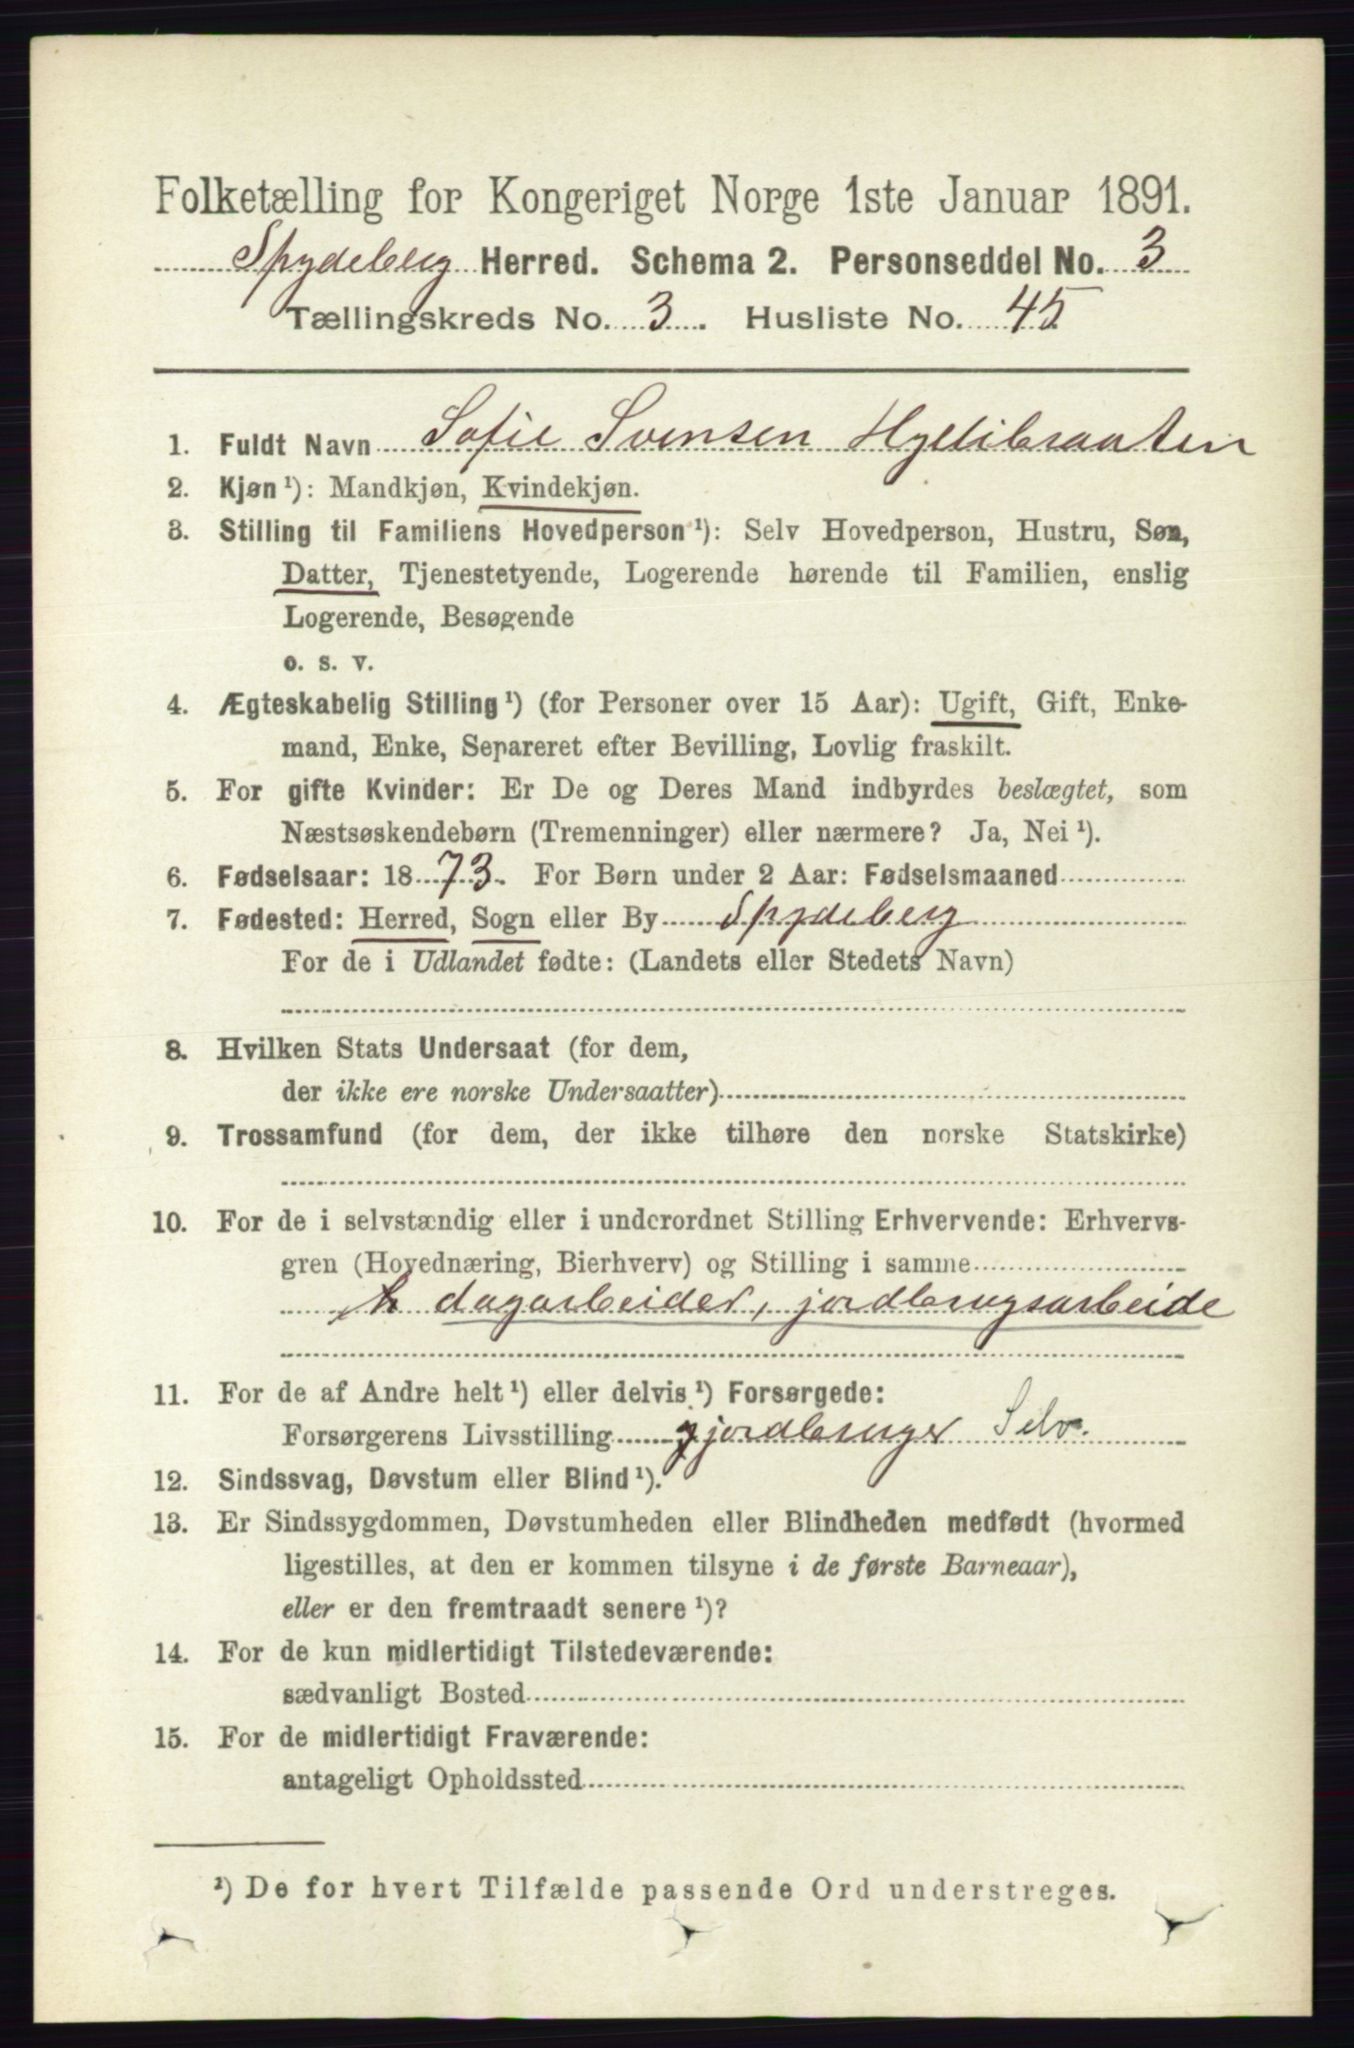 Folketælling for Kongeriget Norge 1ste Januar 1891.
Spydeberg Herred. Schema 2. Personseddel No. 3
Tællingskreds No. 3. Husliste No. 45
1. Fuldt Navn Sofie Svensen Hyllibraaten
2. Kjøn ¹): Mandkjøn, Kvindekjøn.
3. Stilling til Familiens Hovedperson ¹): Selv Hovedperson, Hustru, Søn,
Datter, Tjenestetyende, Logerende hørende til Familien, enslig
Logerende, Besøgende
o. s. v.
4. Ægteskabelig Stilling ¹) (for Personer over 15 Aar): Ugift, Gift, Enke-
mand, Enke, Separeret efter Bevilling, Lovlig fraskilt.
5. For gifte Kvinder: Er De og Deres Mand indbyrdes beslægtet, som
Næstsøskendebørn (Tremenninger) eller nærmere? Ja, Nei ¹).
6. Fødselsaar: 1873. For Børn under 2 Aar: Fødselsmaaned
7. Fødested: Herred, Sogn eller By Spydeberg
For de i Udlandet fødte: (Landets eller Stedets Navn)
8. Hvilken Stats Undersaat (for dem,
der ikke ere norske Undersaatter)
9. Trossamfund (for dem, der ikke tilhøre den norske Statskirke)
10. For de i selvstændig eller i underordnet Stilling Erhvervende: Erhvervs-
gren (Hovednæring, Bierhverv) og Stilling i samme
dagarbeider, jordbrugsarbeide
11. For de af Andre helt ¹) eller delvis ¹) Forsørgede:
Forsørgerens Livsstilling gjordbruger Selv.
12. Sindssvag, Døvstum eller Blind ¹).
13. Er Sindssygdommen, Døvstumheden eller Blindheden medfødt (hvormed
ligestilles, at den er kommen tilsyne i de første Barneaar),
eller er den fremtraadt senere ¹)?
14. For de kun midlertidigt Tilstedeværende:
sædvanligt Bosted
15. For de midlertidigt Fraværende:
antageligt Opholdssted
¹) De for hvert Tilfælde passende Ord understreges.